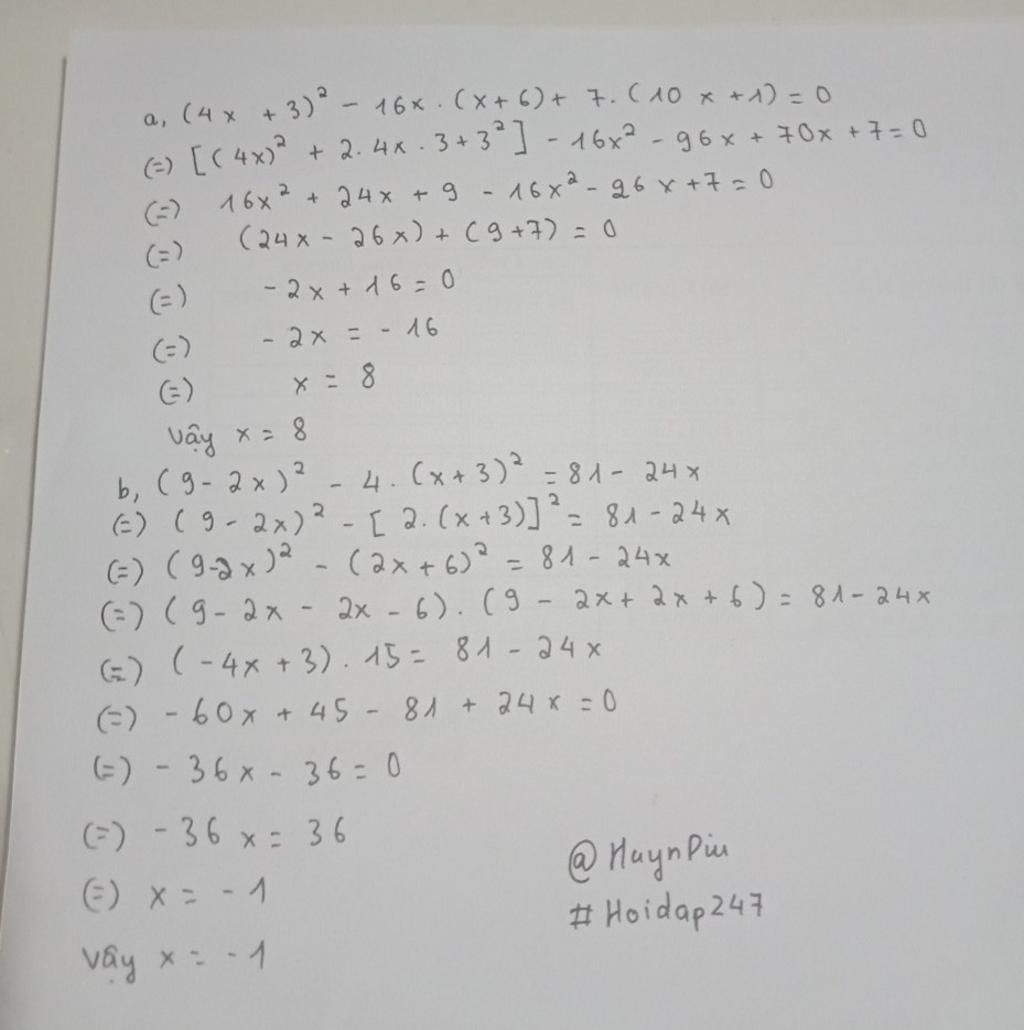 a, (4x + 3)² - 16x . (x + 6) + 7. (10 x + 1) = 0
(=) [(4x)² + 2. 4x . 3 + 3²] - 16x² - 96x + 70x + 7 = 0
(=) 16x² + 24x + 9 - 16x² - 26x + 7 = 0
(=) (24x - 26x) + (9 + 7) = 0
(=) - 2x + 16 = 0
(=) - 2x = - 16
(=) x = 8
Vậy x = 8
b, (9 - 2x)² - 4. (x + 3)² = 81 - 24x
(=) (9 - 2x)² - [2. (x + 3)]² = 81 - 24x
(=) (9-2x)² - (2x + 6)² = 81 - 24x
(=) (9 - 2x - 2x - 6) . (9 - 2x + 2x + 6) = 81 - 24x
(=) (- 4x + 3) . 15 = 81 - 24x
(=) - 60x + 45 - 81 + 24x = 0
(=) - 36x - 36 = 0
(=) - 36x = 36
(=) x = - 1
Vậy x = - 1
@HuynPiu
#Hoidap247